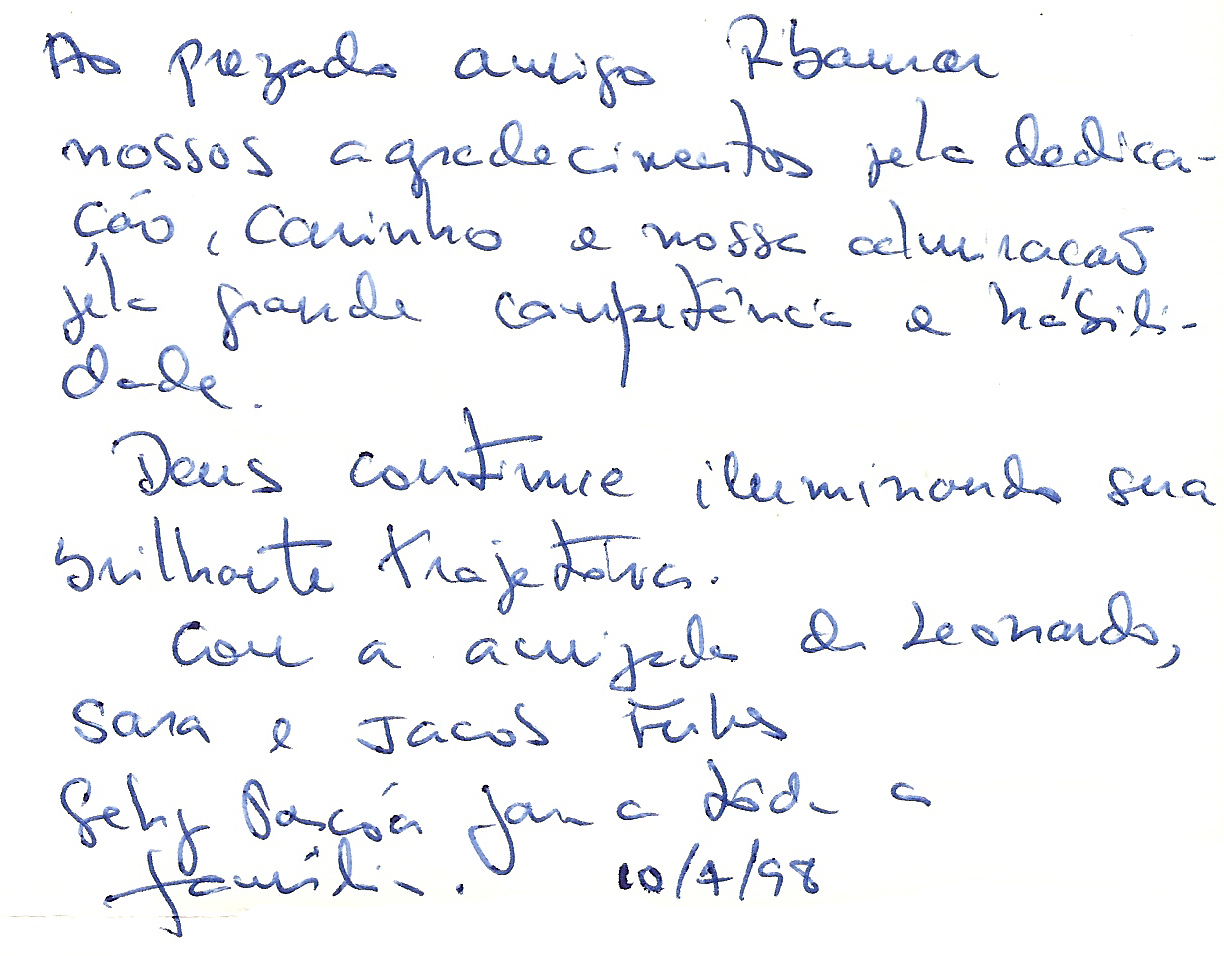 Ao prezado amigo Ribamar
nossos agradecimentos pela dedica-
ção, carinho e nossa admiração
pela grande competência e hábili-
dade.
Deus continue iluminando sua
brilhante trajetória.
Com a amizade de Leonardo,
Sara e Jacob Fuks
Feliz Pascóa para tôda a
família. 10/4/98